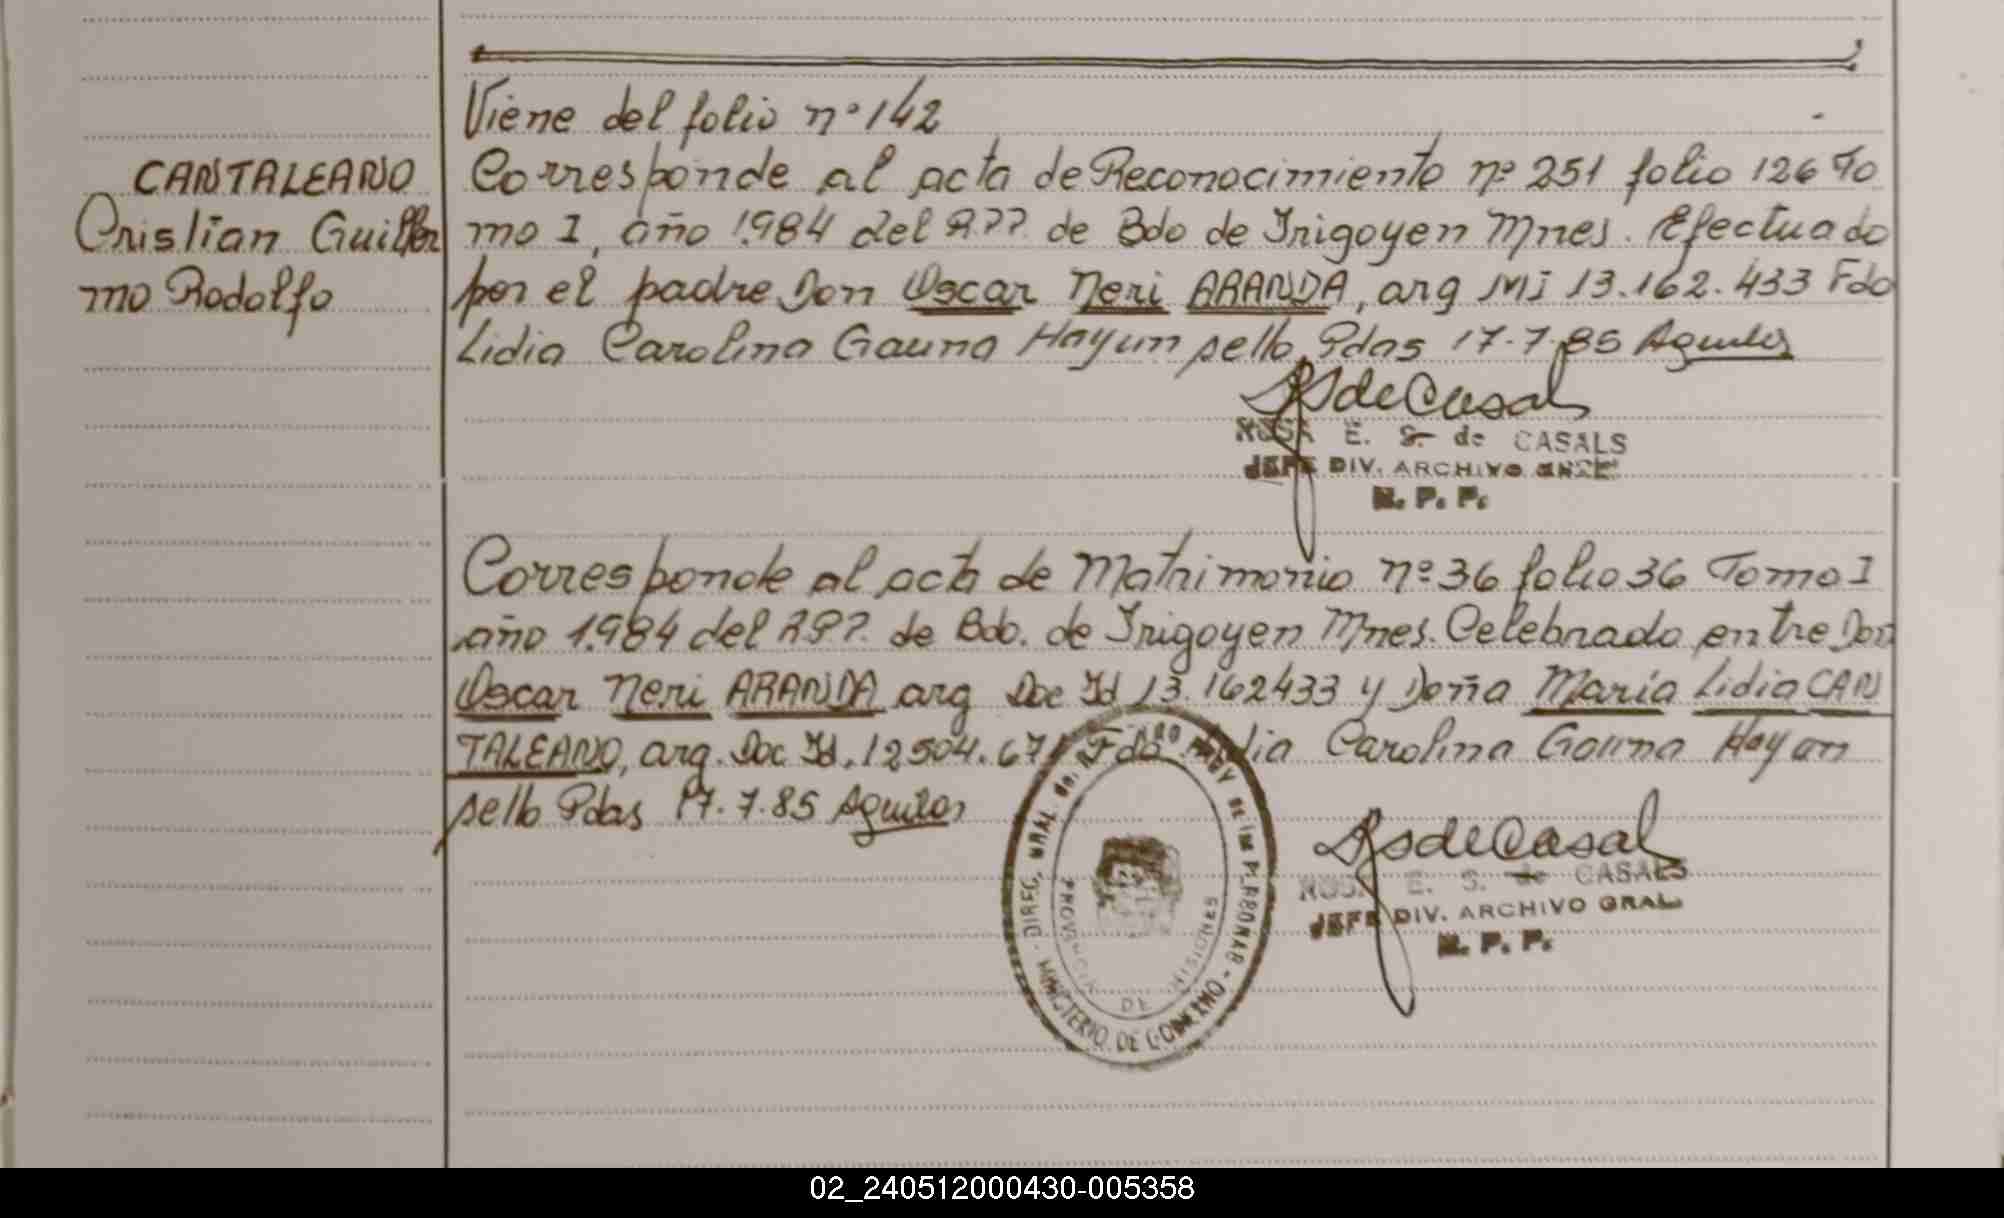 Viene del folio nº 142
CANTALEANO
Cristian Guiller
mo Rodolfo
Corresponde al acta de Reconocimiento nº 251 folio 126 To
mo I, año 1.984 del RPP. de Bdo de Irigoyen Mnes. Efectuado
por el padre Don Oscar Neri ARANDA, arg MI 13.162.433 Fdo
Lidia Carolina Gauna Hayun sello Pdas 17.7.85
E. S. de CASALS
JEFE DIV. ARCHIVO GRAL
R. P. P.
Corresponde al acta de Matrimonio nº 36 folio 36 Tomo I
año 1.984 del RPP. de Bdo. de Irigoyen Mnes. Celebrado entre Don
Oscar Neri ARANDA arg Doc Id 13.162433 y Doña María Lidia CAN
TALEANO, arg. Doc Id. 12504.67 Fdo Lidia Carolina Gauna Hayun
sello Pdas 17.7.85
ROSA E. S. de CASALS
JEFE DIV. ARCHIVO GRAL
R. P. P.
PROVINCIA DE MISIONES
MINISTERIO DE GOBIERNO
02_240512000430-005358